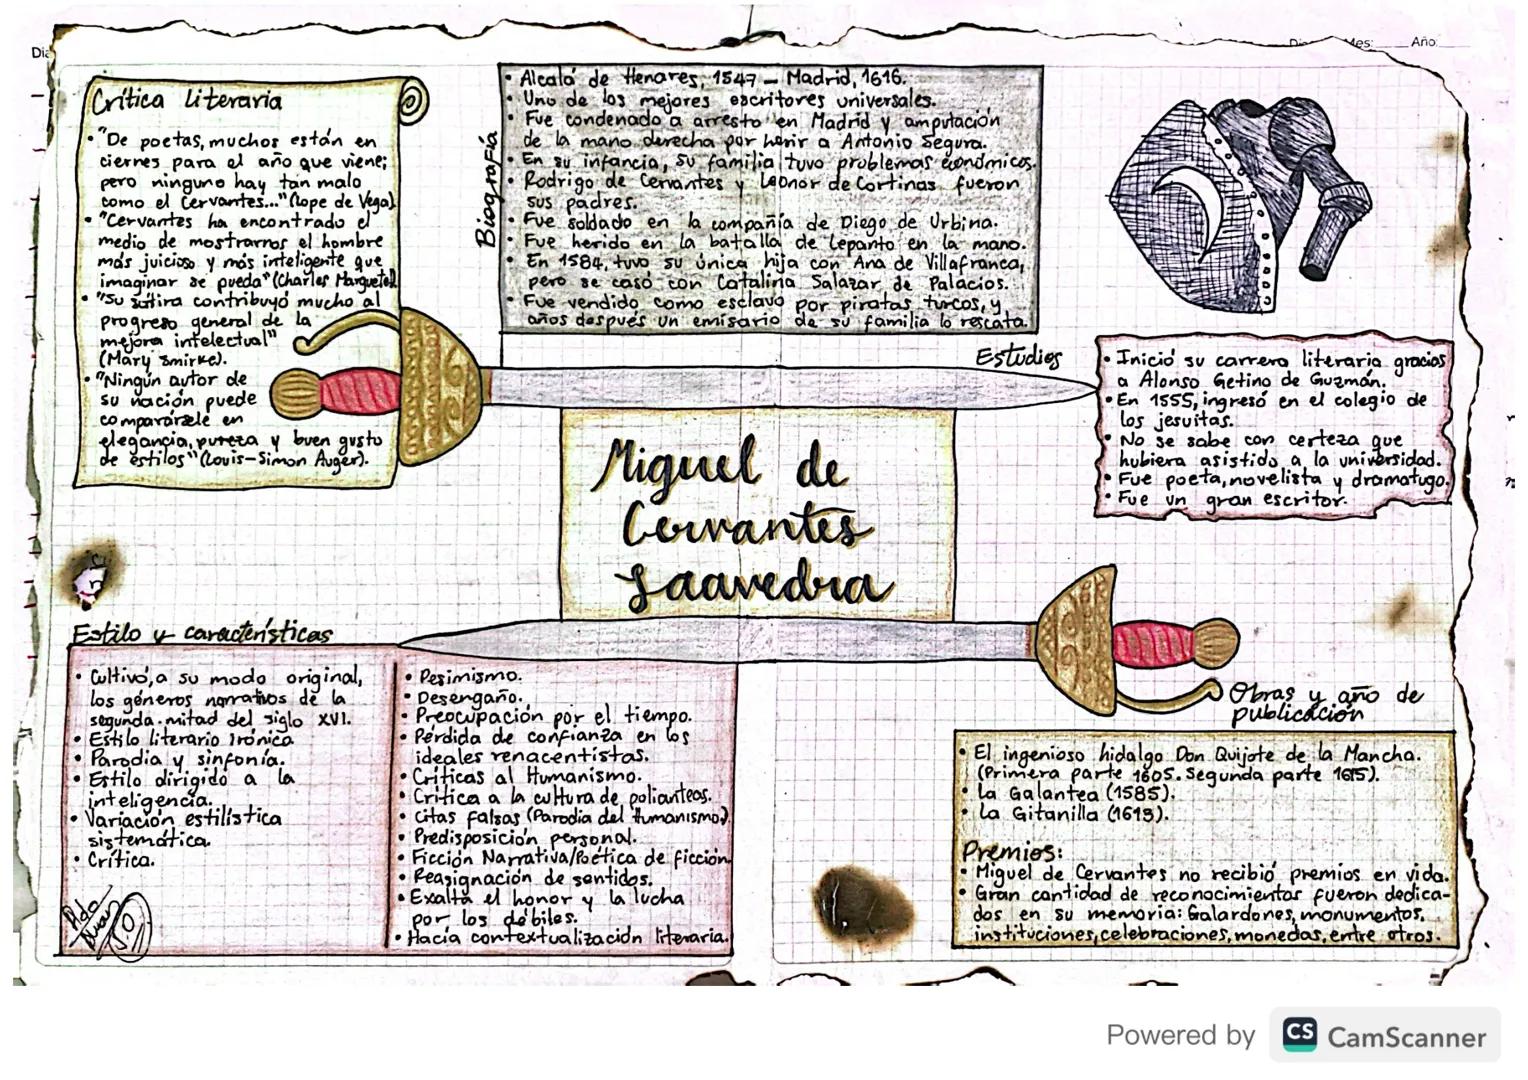 Día
Mes: Año:
Crítica Literaria
• "De poetas, muchos están en
ciernes para el año que viene;
pero ninguno hay tan malo
como el Cervantes..." (Lope de Vega)
• "Cervantes ha encontrado el
medio de mostrarnos el hombre
más juicioso y más inteligente que
imaginar se pueda" (Charles Marguetel)
• "Su sátira contribuyó mucho al
progreso general de la
mejora intelectual"
(Mary Smirke).
• "Ningún autor de
su nación puede
comparársele en
elegancia, pureza y buen gusto
de estilos" (Louis-Simon Auger).
Biografía
• Alcalá de Henares, 1547 – Madrid, 1616.
• Uno de los mejores escritores universales.
• Fue condenado a arresto en Madrid y amputación
de la mano derecha por herir a Antonio Segura.
• En su infancia, su familia tuvo problemas económicos.
• Rodrigo de Cervantes y Leonor de Cortinas fueron
sus padres.
• Fue soldado en la compañía de Diego de Urbina.
• Fue herido en la batalla de Lepanto en la mano.
• En 1584, tuvo su única hija con Ana de Villafranca,
pero se casó con Catalina Salazar de Palacios.
• Fue vendido como esclavo por piratas turcos, y
años después un emisario de su familia lo rescata.
Estudios
• Inició su carrera literaria gracias
a Alonso Getino de Guzmán.
• En 1555, ingresó en el colegio de
los jesuitas.
• No se sabe con certeza que
hubiera asistido a la universidad.
• Fue poeta, novelista y dramatugo.
• Fue un gran escritor.
Miguel de
Cervantes
Saavedra
Estilo y características
• Cultivó, a su modo original,
los géneros narrativos de la
segunda mitad del siglo XVI.
• Estilo literario Irónico.
• Parodia y sinfonía.
• Estilo dirigido a la
inteligencia.
• Variación estilística
sistemática.
• Crítica.
• Pesimismo.
• Desengaño.
• Preocupación por el tiempo.
• Pérdida de confianza en los
ideales renacentistas.
• Críticas al Humanismo.
• Crítica a la cultura de polianteas.
• Citas falsas (Parodia del Humanismo).
• Predisposición personal.
• Ficción Narrativa/Poética de ficción.
• Reasignación de sentidos.
• Exalta el honor y la lucha
por los débiles.
• Hacía contextualización literaria.
Obras y año de
publicación
• El ingenioso hidalgo Don Quijote de la Mancha.
(Primera parte 1605. Segunda parte 1615).
• La Galantea (1585).
• La Gitanilla (1613).
Premios:
• Miguel de Cervantes no recibió premios en vida.
• Gran cantidad de reconocimientos fueron dedica-
dos en su memoria: Galardones, monumentos,
instituciones, celebraciones, monedas, entre otros.
Powered by CS CamScanner